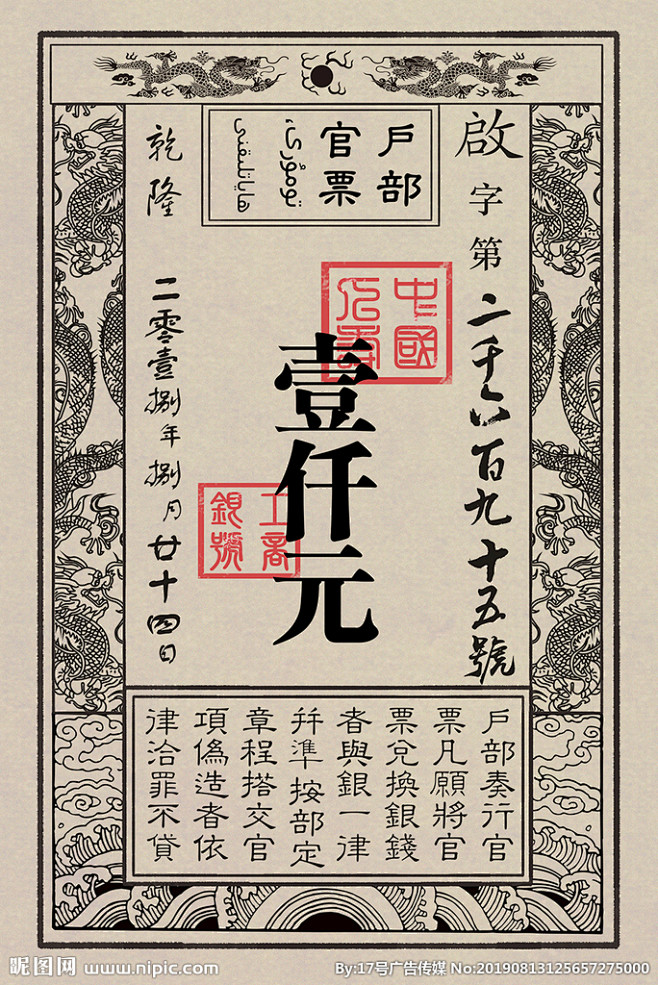 戶部
官票
啟字第二千六百九十五號
中國
壹仟元
工商
銀號
乾隆
二零壹捌年捌月廿十四日
戶部奏行官
票凡願將官
票兌換銀錢
者與銀一律
幷準按部定
章程搭交官
項僞造者依
律治罪不貸
昵图网 www.nipic.com
By:17号广告传媒 No:20190813125657275000